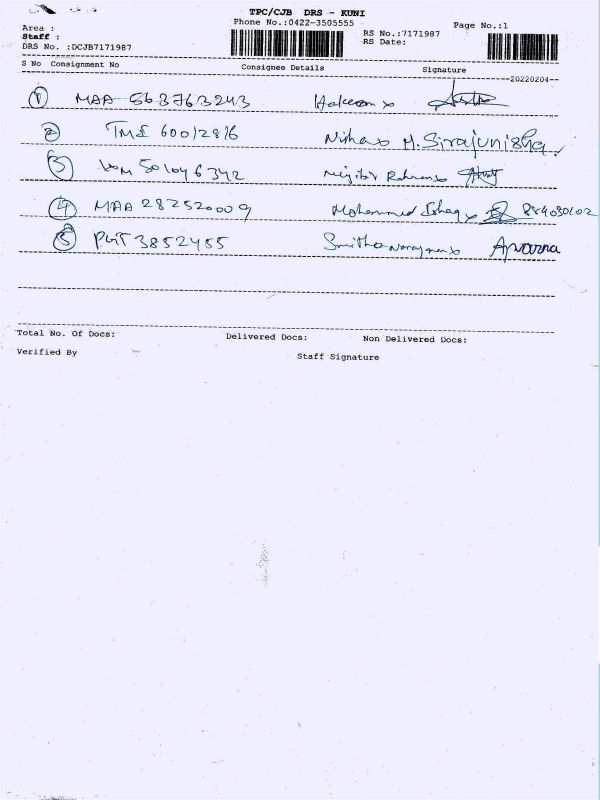 TPC/CJB DRS - KUNI
Area : Phone No.:0422-3505555 Page No.:1
Staff : RS No.:7171987
DRS No. :DCJB7171987 RS Date:
S No Consignment No Consignee Details Signature
20220204
1 MAA 563763243 Hakeem
2 TME 60012816 Nihas M. Sirajunisha
3 501046342
4 MAA 282520009 Mohammed Ishaq
5 PGT 3852455 Smitha Aparna
Total No. Of Docs: Delivered Docs: Non Delivered Docs:
Verified By Staff Signature